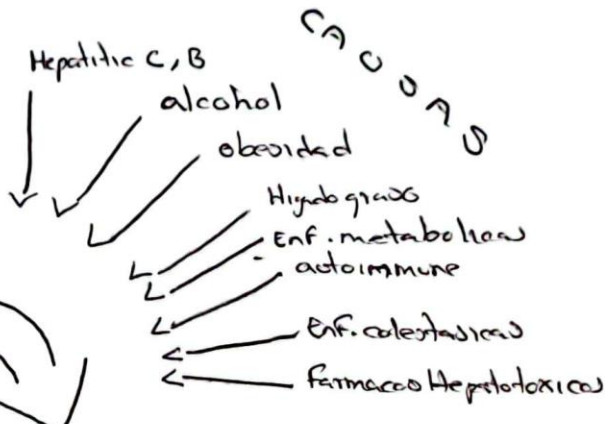 CAUSAS
Hepatitic C, B
alcohol
obesidad
Hígado graso
Enf. metabolicas
autoimmune
Enf. colestasicas
farmacos Hepatotoxicos